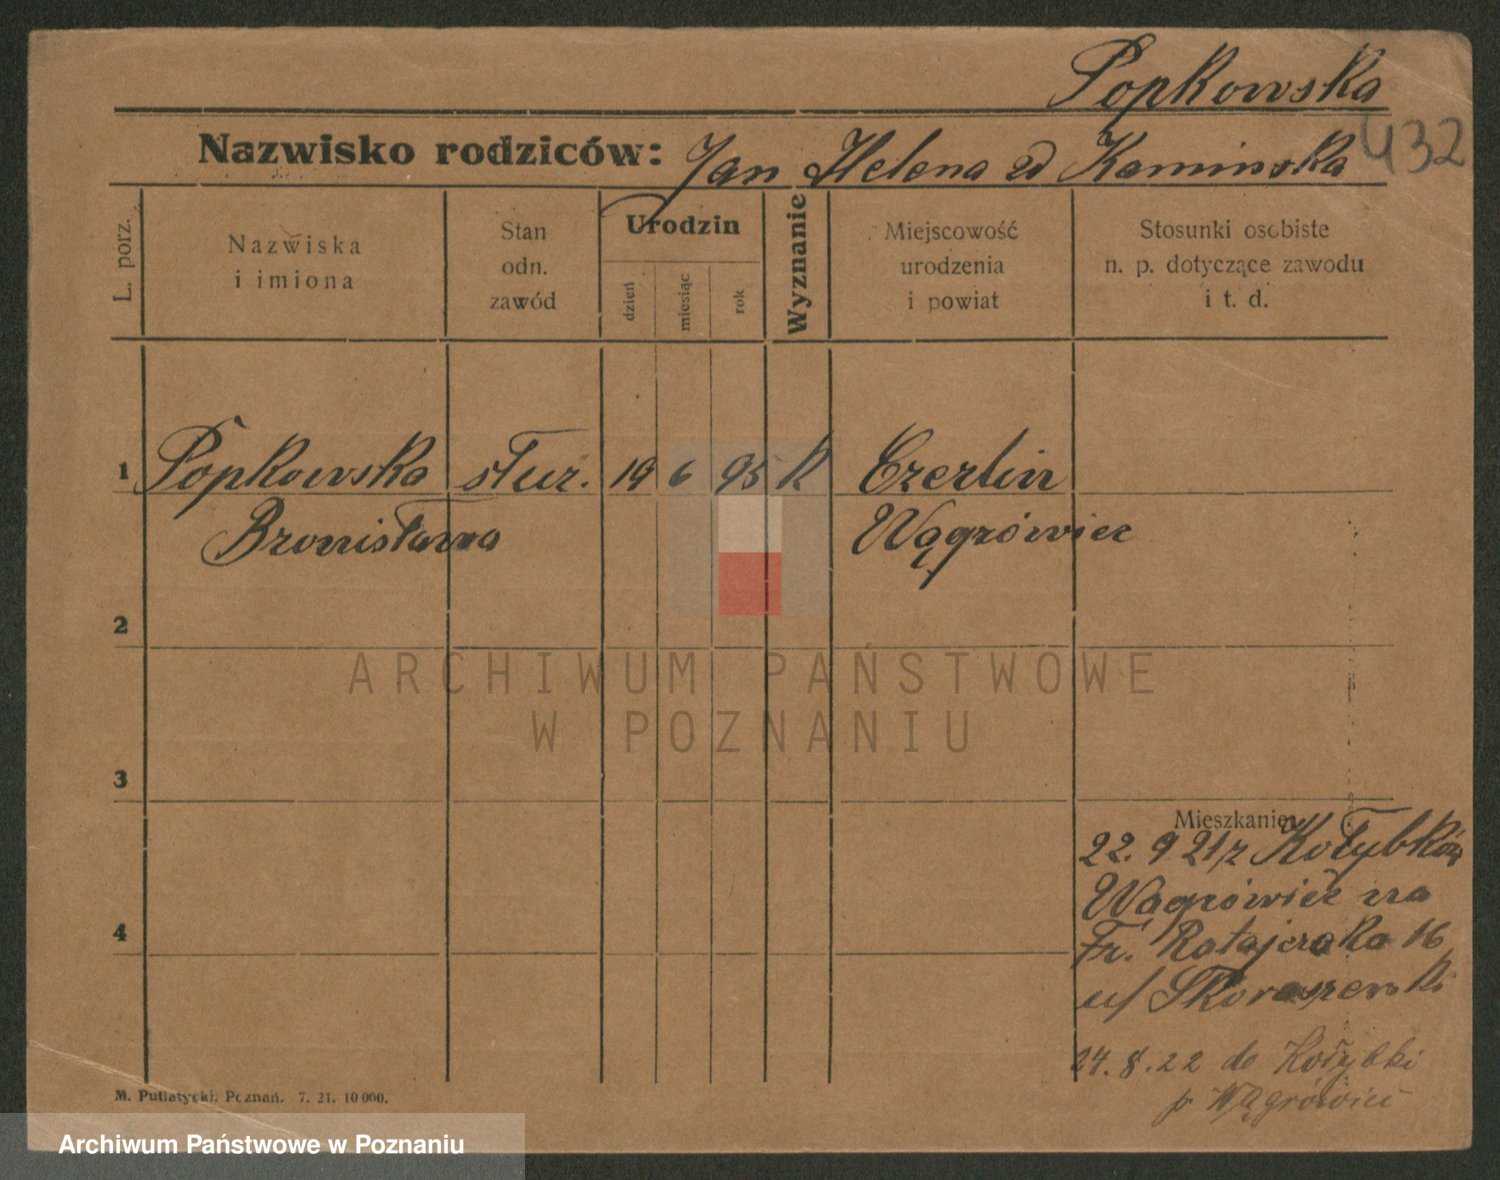 Popkowska
432
Nazwisko rodziców: Jan Helena zd Kaminska
L. porz.
Nazwiska
i imiona
Stan
odn.
zawód
Urodzin
dzień
miesiąc
rok
Wyznanie
Miejscowość
urodzenia
i powiat
Stosunki osobiste
n. p. dotyczące zawodu
i t. d.
1 Popkowska służ. 19 6 95 K Czerlin
Bronisława Wągrówiec
2
ARCHIWUM PAŃSTWOWE
W POZNANIU
3
Mieszkanie:
22. 9 21 z Kołybków
Wągrówiec na
Fr. Ratajczaka 16
u/ Skoraszewski
4
24. 8. 22 do Kołybki
p Wągrówiec
M. Putiatycki, Poznań. 7. 21. 10 000.
Archiwum Państwowe w Poznaniu